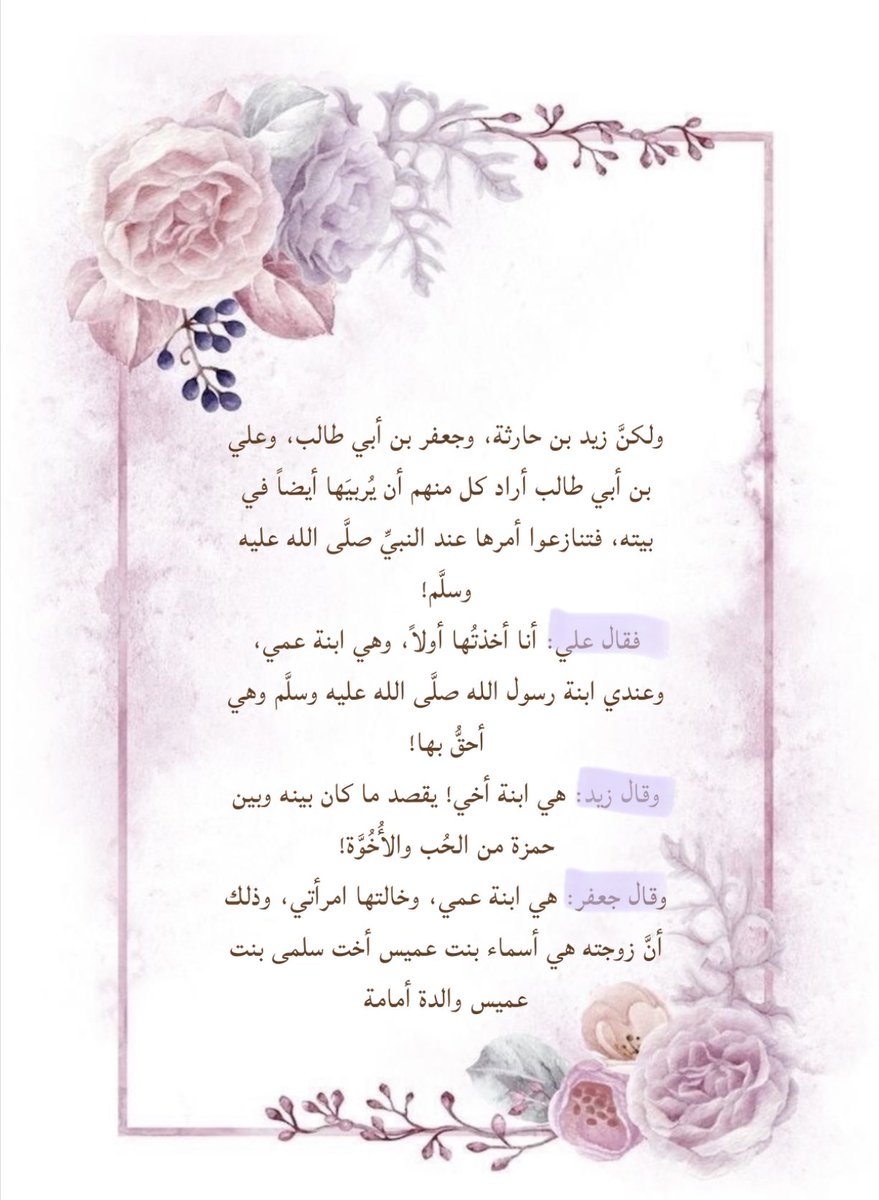 ولكنَّ زيد بن حارثة، وجعفر بن أبي طالب، وعلي
بن أبي طالب أراد كل منهم أن يُربيَها أيضاً في
بيته، فتنازعوا أمرها عند النبيِّ صلَّى الله عليه
وسلَّم!
فقال علي: أنا أخذتُها أولاً، وهي ابنة عمي،
وعندي ابنة رسول الله صلَّى الله عليه وسلَّم وهي
أحقُّ بها!
وقال زيد: هي ابنة أخي! يقصد ما كان بينه وبين
حمزة من الحُب والأُخُوَّة!
وقال جعفر: هي ابنة عمي، وخالتها امرأتي، وذلك
أنَّ زوجته هي أسماء بنت عميس أخت سلمى بنت
عميس والدة أمامة